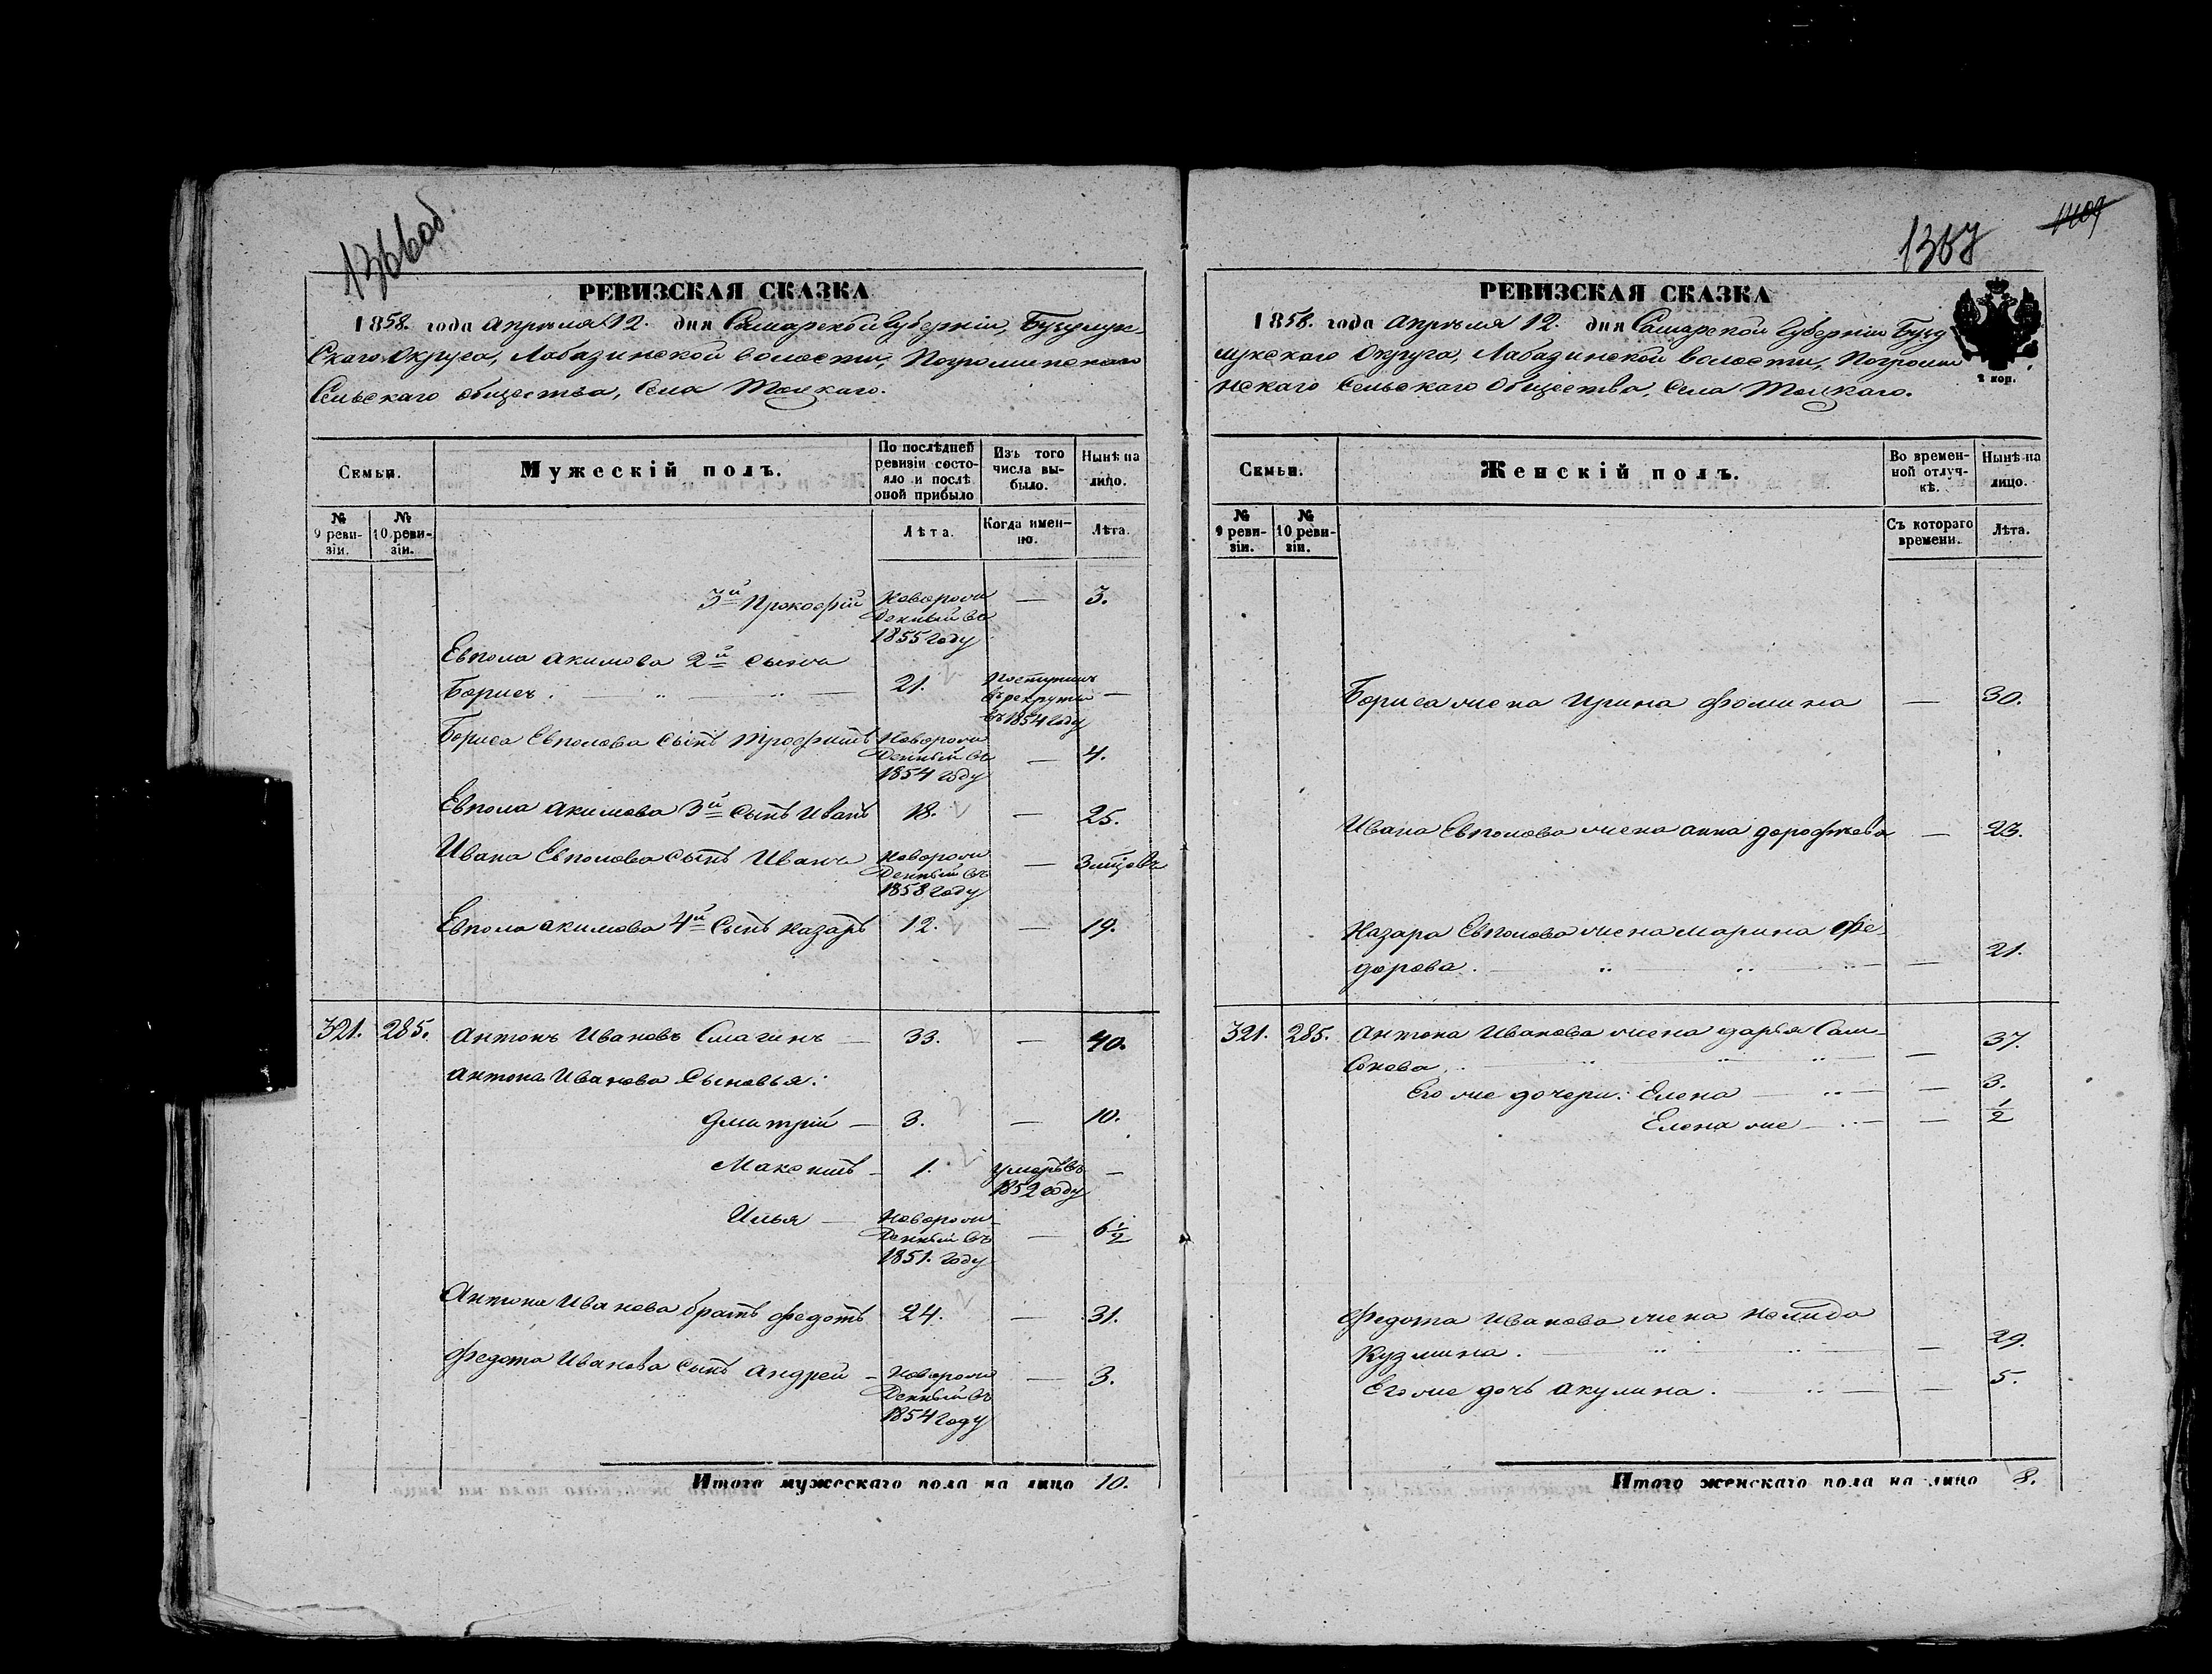 1366об.
РЕВИЗСКАЯ СКАЗКА
1858. года апреля 12. дня Самарской Губернии, Бузулук-
скаго Округа, Лабазинской волости, Погроминскаго
Сельскаго общества, Села Тоцкаго.
Семьи.
Мужескій полъ.
По послѣдней ревизіи состо-
яло и послѣ оной прибыло
Изъ того числа вы-
было.
Нынѣ на лицо.
№ 9 реви-
зіи.
№ 10 реви-
зіи.
Лѣта.
Когда имен-
но.
Лѣта.
3й Прокофій Новорож
денный въ
1855 году — 3.
Евпола Акимова 2й сынъ
Борисъ. 21. Поступилъ
въ рекруты
въ 1854 году —
Бориса Евполова сынъ Трофимъ Новорож
денный въ
1854 году — 4.
Евпола Акимова 3й сынъ Иванъ 18. — 25.
Ивана Евполова сынъ Иванъ Новорож
денный въ
1858 году — 3 мѣцовъ
Евпола Акимова 4й сынъ Назаръ 12. — 19.
321. 285. Антонъ Ивановъ Смагинъ — 33. — 40.
Антона Иванова Сыновья:
Дмитрій — 3. — 10.
Максимъ — 1. умеръ въ
1852 году —
Илья — Новорож
денный въ
1851. году — 6 1/2
Антона Иванова братъ Федотъ 24. — 31.
Федота Иванова сынъ Андрей — Новорож
денный въ
1854 году — 3.
Итого мужескаго пола на лицо 10.
1367
1409
РЕВИЗСКАЯ СКАЗКА
1858. года Апреля 12. дня Самарской Губернии Бузу
лукскаго Округа, Лабазинской волости, Погроми
нскаго Сельскаго Общества, Села Тоцкаго.
2 коп.
Семьи.
Женскій полъ.
Во времен-
ной отлуч-
кѣ.
Нынѣ на лицо.
№ 9 реви-
зіи.
№ 10 реви-
зіи.
Съ котораго времени.
Лѣта.
Бориса жена Ирина Фомина — 30.
Ивана Евполова жена Анна Дорофѣева — 23.
Назара Евполова жена Марина Фе-
дорова. — 21.
321. 285. Антона Иванова жена Дарья Сам-
сонова. — 37.
Его же дочери: Елена — 3.
Елена же — 1/2
Федота Иванова жена
Кузмина. — 29.
Его же дочь Акулина. — 5.
Итого женскаго пола на лицо 8.